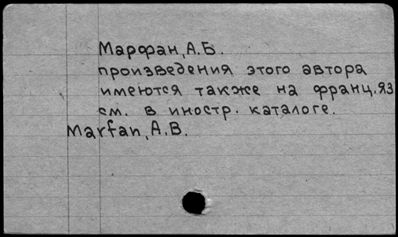 Марфан, А.Б.
произведения этого автора
имеются также на франц. яз
см. в иностр. каталоге.
Marfan, A.B.